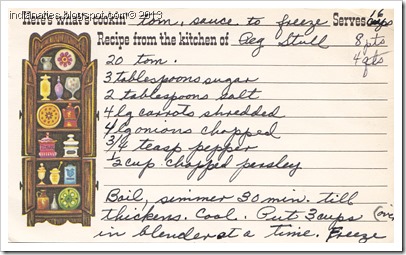 indianatea.blogspot.com © 2013
Here's What's Cookin' tom, sauce to freeze Serves 16 cups
Recipe from the kitchen of Peg Stull 8 pts
4 qts
20 tom.
3 tablespoons sugar
2 tablespoons salt
4 lg carrots shredded
4 lg onions chopped
3/4 teasp pepper
1/2 cup chopped parsley
Boil, simmer 30 min. till
thickens. Cool. Put 3 cups
in blender at a time. Freeze